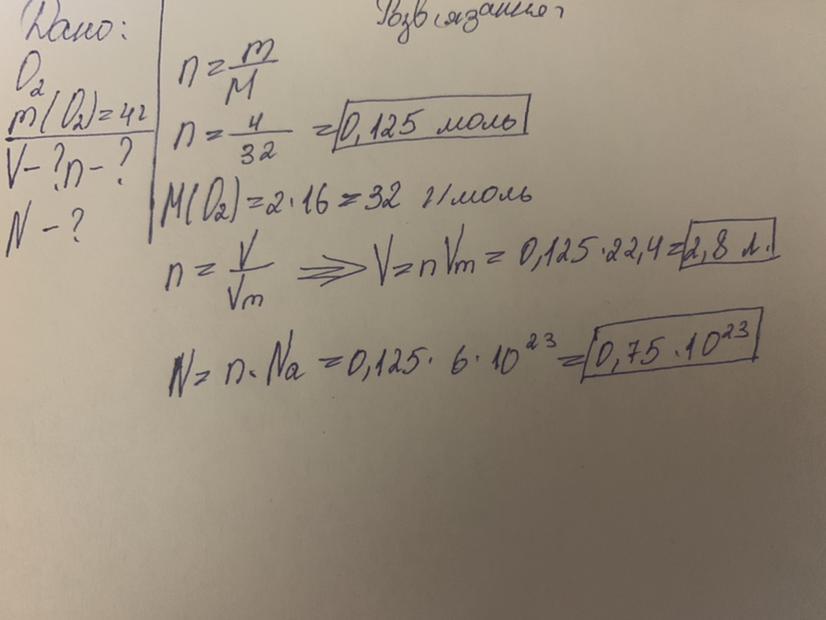 Дано:
O₂
m(O₂)=4г
V-? n-?
N-?
Розв'язання:
n = m/M
n = 4/32 = 0,125 моль
M(O₂)=2·16=32 г/моль
n = V/Vm ⟹ V=nVm = 0,125·22,4=2,8 л.
N= n·Na =0,125· 6·10²³ =0,75·10²³